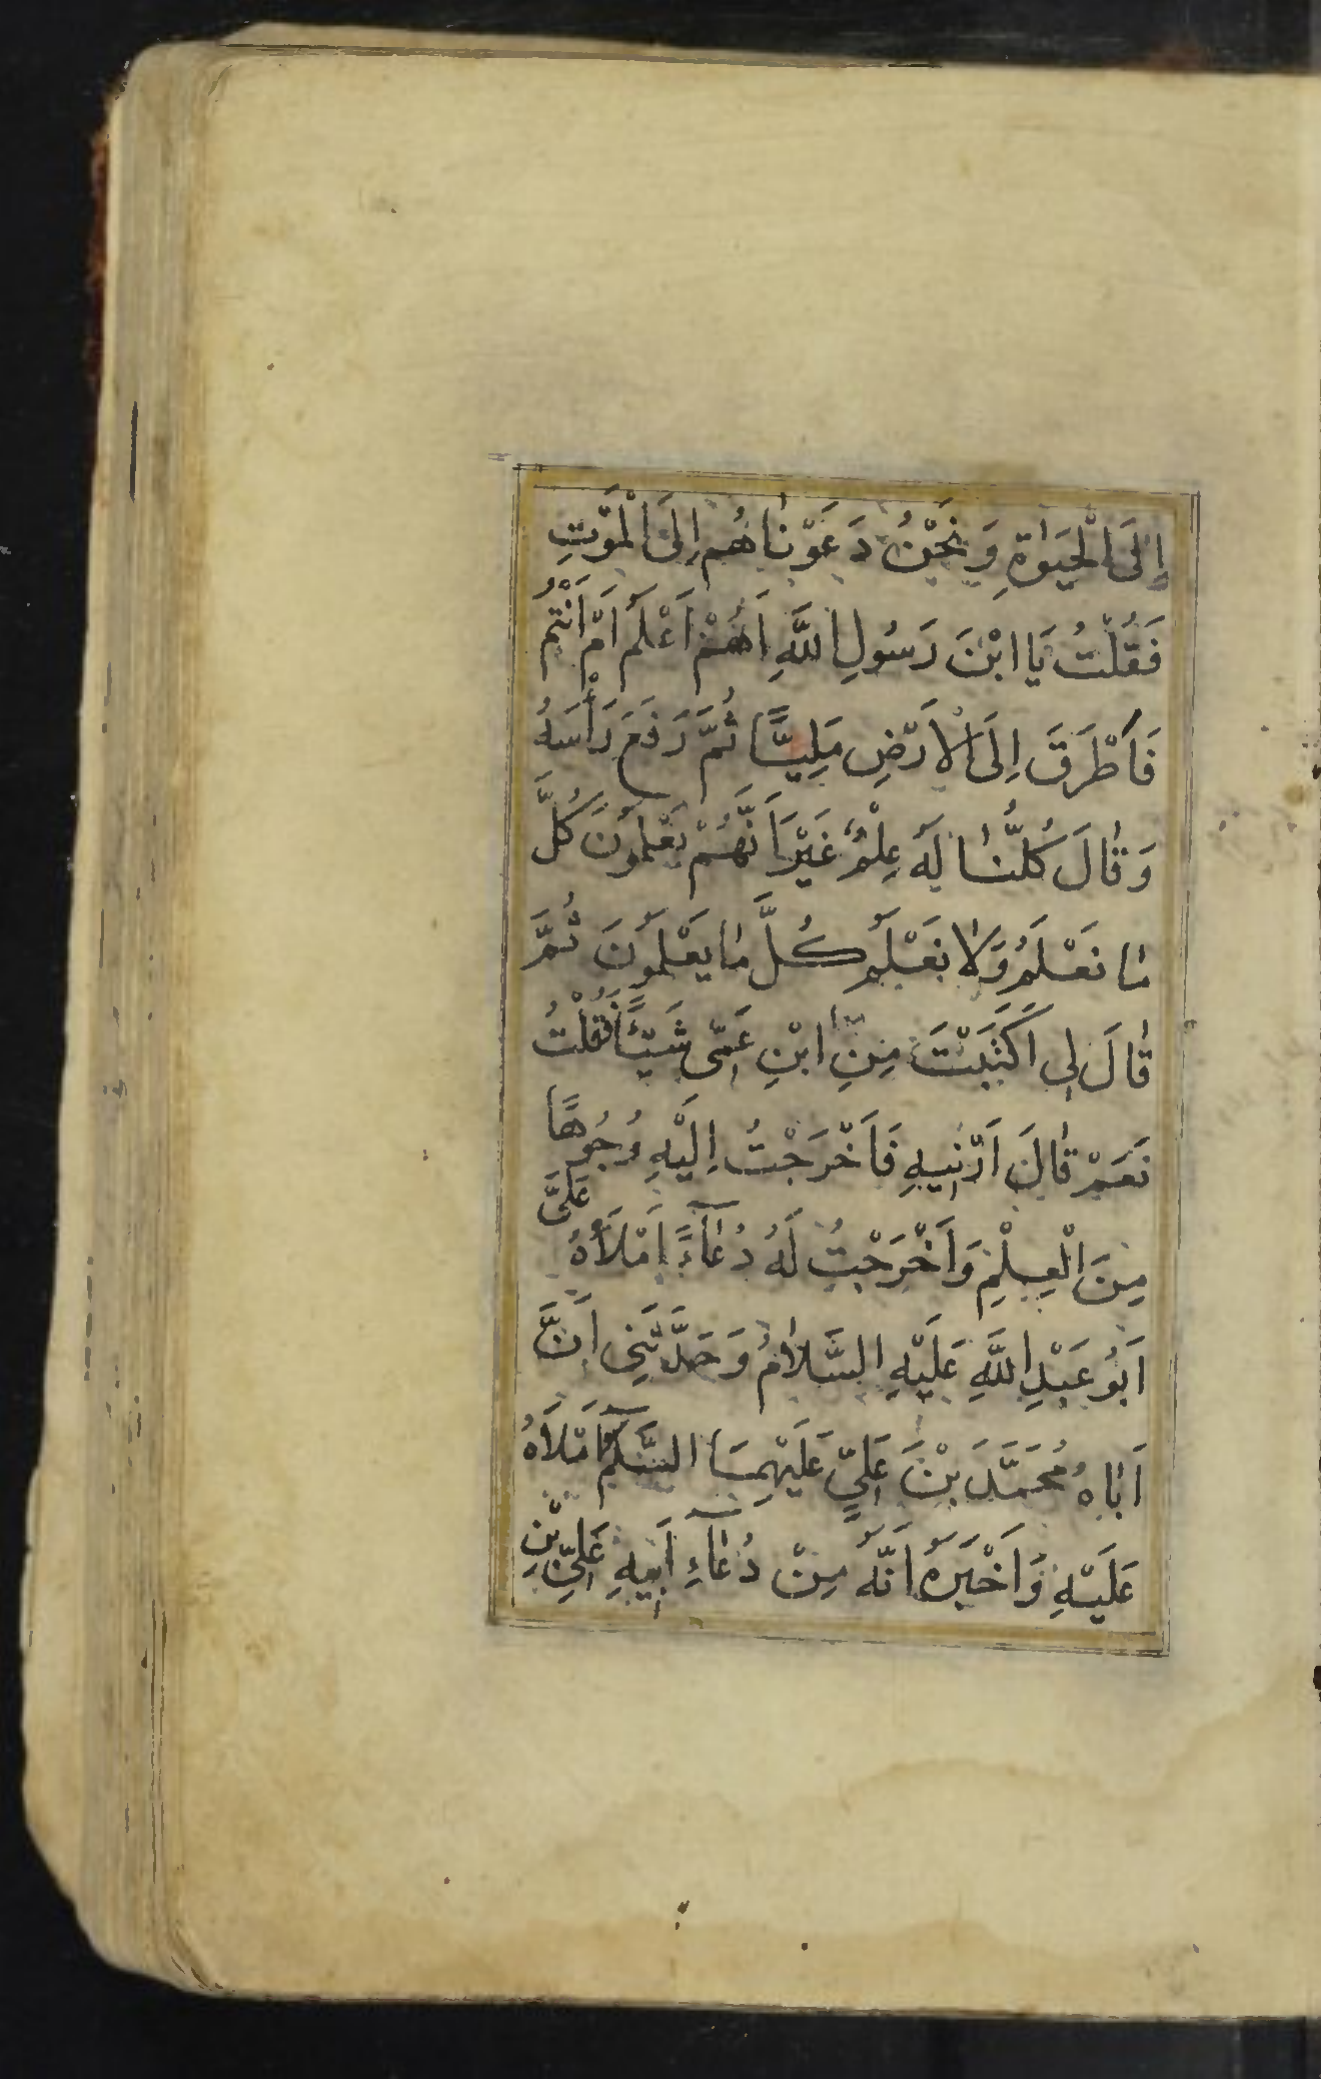 إِلَى الْحَيٰوةِ وَنَحْنُ دَعَوْنَاهُمْ إِلَى الْمَوْتِ
فَقُلْتُ يَا ابْنَ رَسُولِ اللَّهِ اَهُمْ اَعْلَمُ اَمْ اَنْتُمْ
فَاَطْرَقَ اِلَى الْاَرْضِ مَلِيًّا ثُمَّ رَفَعَ رَأْسَهُ
وَقَالَ كُلُّنَا لَهُ عِلْمٌ غَيْرَ اَنَّهُمْ يَعْلَمُونَ كُلَّ
مَا نَعْلَمُ وَلَا نَعْلَمُ كُلَّ مَا يَعْلَمُونَ ثُمَّ
قَالَ لِى اَكَتَبْتَ مِنِ ابْنِ عَمِّى شَيْئًا فَقُلْتُ
نَعَمْ قَالَ اَرِنِيهِ فَاَخْرَجْتُ اِلَيْهِ وُجُوهًا
مِنَ الْعِلْمِ وَاَخْرَجْتُ لَهُ دُعَآءً اَمْلَاَهُ عَلَىَّ
اَبُو عَبْدِ اللَّهِ عَلَيْهِ السَّلَامُ وَحَدَّثَنِى اَنَّ
اَبَاهُ مُحَمَّدَ بْنَ عَلِيٍّ عَلَيْهِمَا السَّلَمُ اَمْلَاَهُ
عَلَيْهِ وَاَخْبَرَهُ اَنَّهُ مِنْ دُعَآءِ اَبِيهِ عَلِيِّ بْنِ